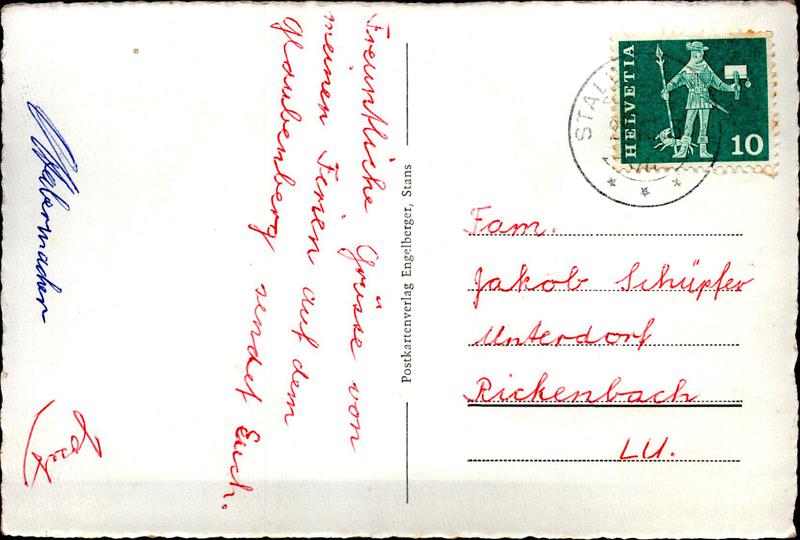 Freuntliche Grüsse von
meinen Ferien auf dem
Glaubenberg sendet Euch.
Postkartenverlag Engelberger, Stans
HELVETIA
10
STAL
Fam.
Jakob Schüpfer
Unterdorf
Rickenbach
LU.